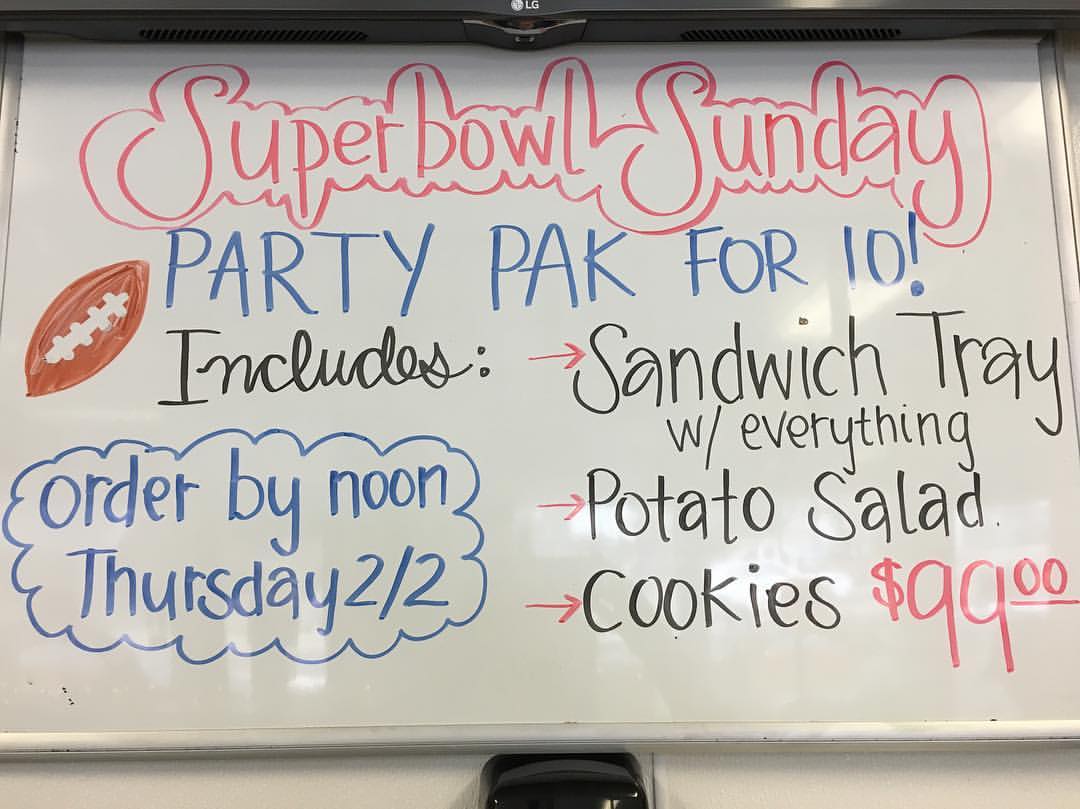 LG
Superbowl Sunday
PARTY PAK FOR 10!
Includes:
→Sandwich Tray
w/ everything
→Potato Salad.
→Cookies $99⁰⁰
order by noon
Thursday 2/2